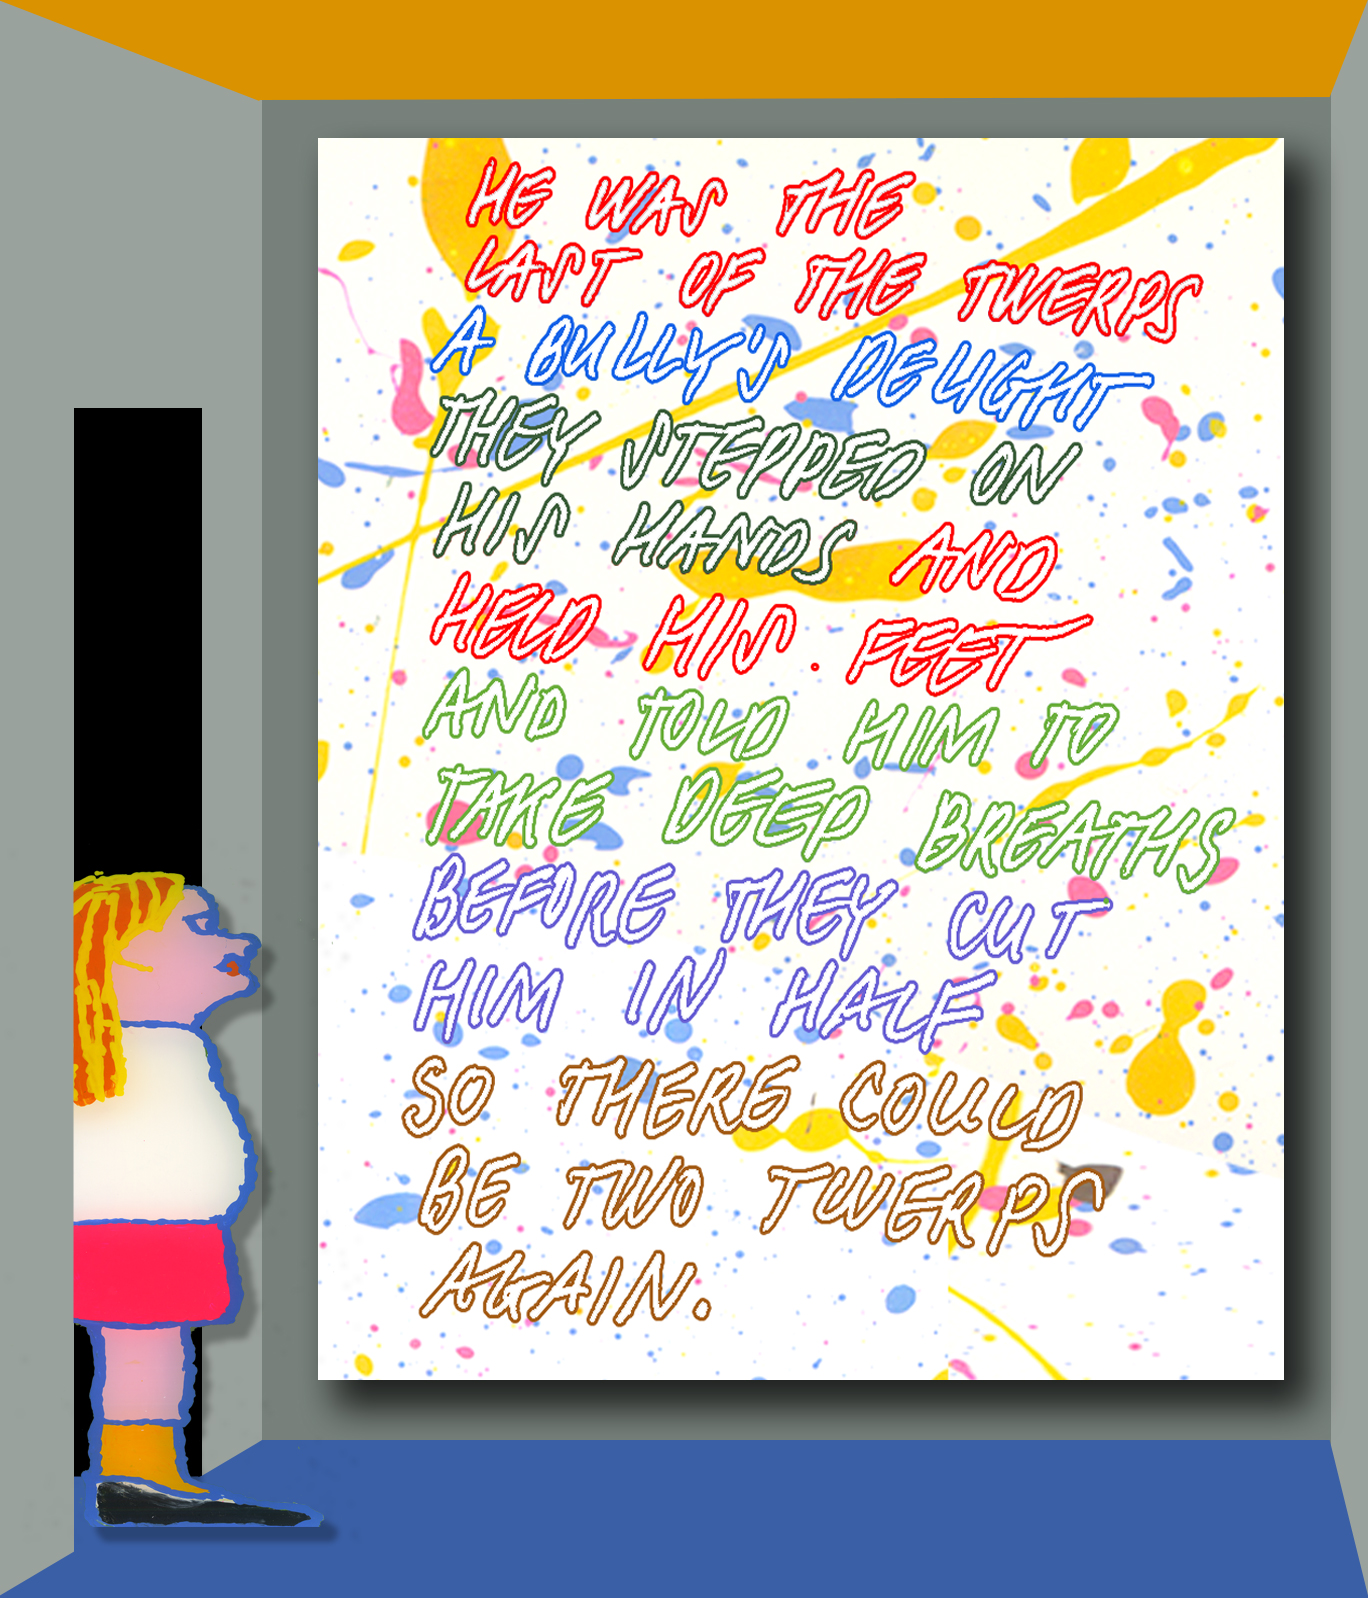 HE WAS THE
LAST OF THE TWERPS
A BULLY'S DELIGHT
THEY STEPPED ON
HIS HANDS AND
HELD HIS . FEET
AND TOLD HIM TO
TAKE DEEP BREATHS
BEFORE THEY CUT
HIM IN HALF
SO THERE COULD
BE TWO TWERPS
AGAIN.